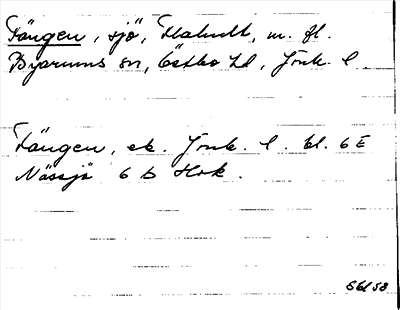 Fängen, sjö, Flahult, m. fl.
Byarums sn, Östbo hd, Jönk. l.
Fängen, ek. Jönk. l. bl. 6 E
Nässjö 6 D Hok.